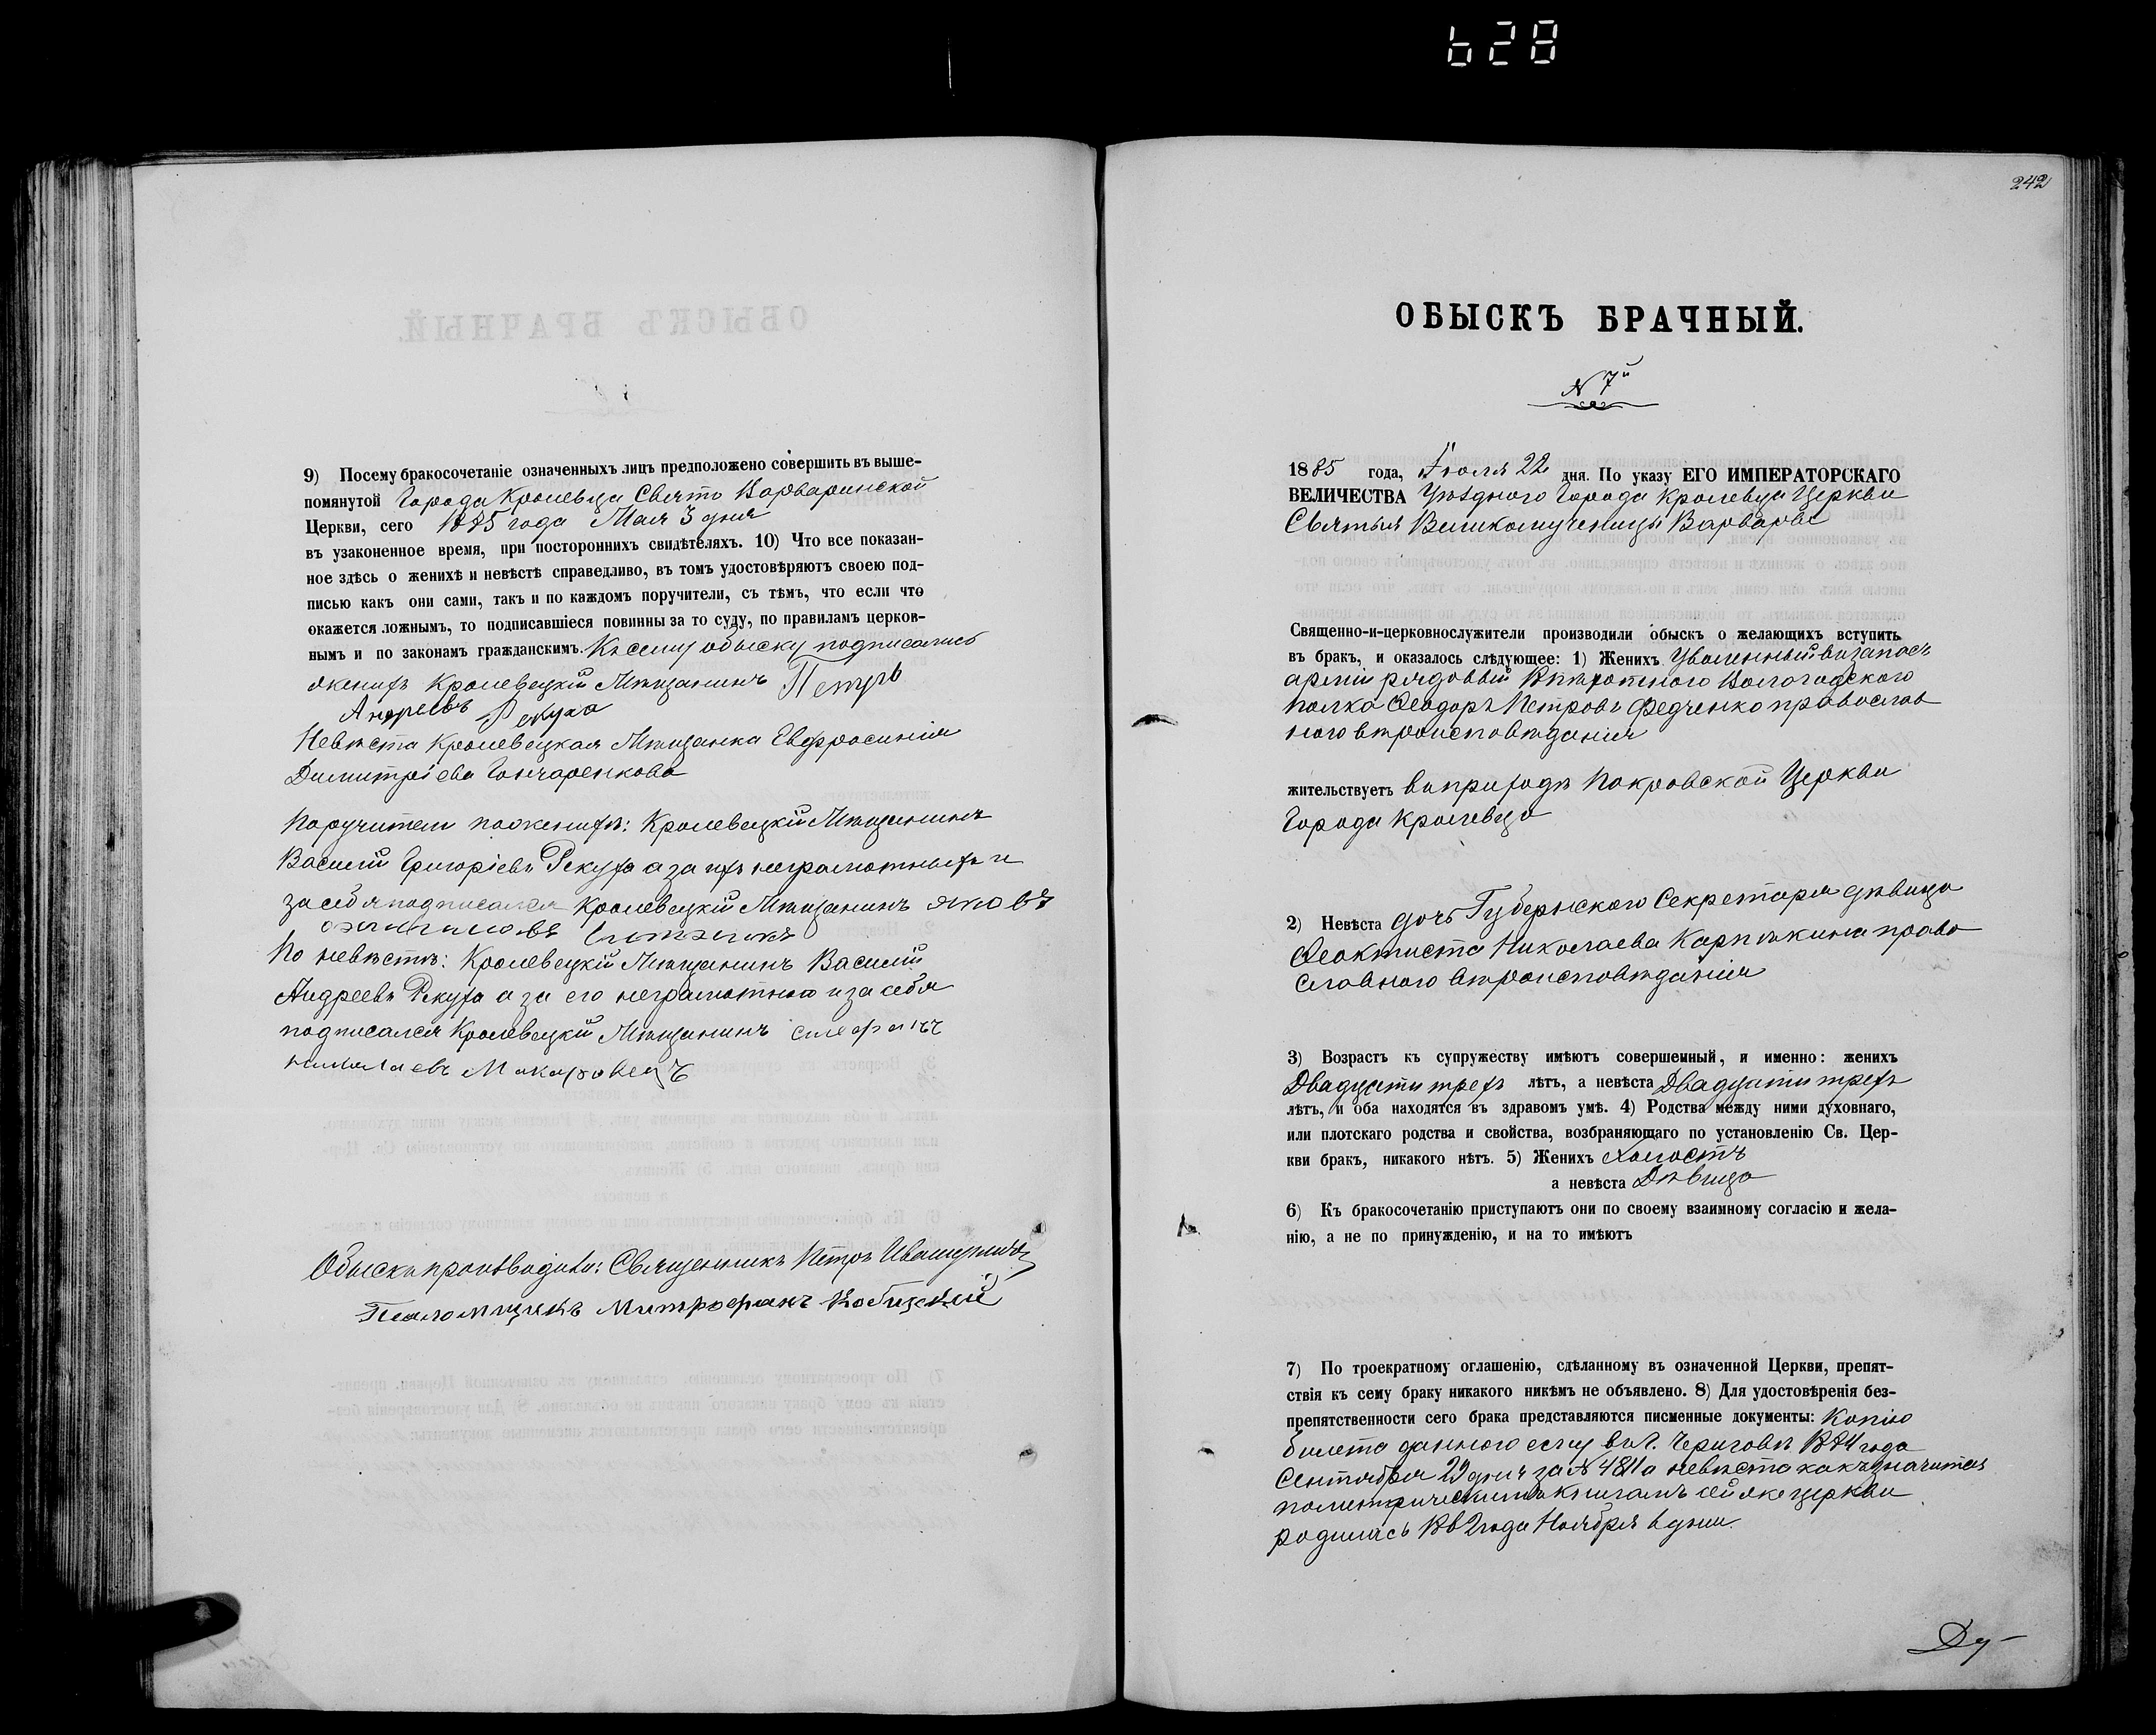 628
9) Посему бракосочетаніе означенныхъ лицъ предположено совершить въ выше-
помянутой Города Кролевца Свято Варваринской
Церкви, сего 1885 года Мая 3 дня
въ узаконенное время, при постороннихъ свидѣтеляхъ. 10) Что все показан-
ное здѣсь о женихѣ и невѣстѣ справедливо, въ томъ удостовѣряютъ своею под-
писью какъ они сами, такъ и по каждомъ поручители, съ тѣмъ, что если что
окажется ложнымъ, то подписавшіеся повинны за то суду, по правиламъ церков-
нымъ и по законамъ гражданскимъ. Къ сему обыску подписались
женихъ Кролевецкій Мѣщанинъ Петръ
Андреевъ Рекуха
Невѣста Кролевецкая Мѣщанка Евфросинія
Димитріева Гончаренкова
Поручители по женихѣ: Кролевецкій Мѣщанинъ
Василій Григоріевъ Рекуха а за ихъ неграмотныхъ и
за себя подписался Кролевецкій Мѣщанинъ Яковъ
По невѣстѣ: Кролевецкій Мѣщанинъ Василій
Андреевъ Рекуха а за его неграмотнаго и за себя
подписался Кролевецкій Мѣщанинъ Стефанъ
Николаевъ Макаровецъ
Обыскъ производили: Священникъ Петръ
Псаломщикъ Митрофанъ
242
ОБЫСКЪ БРАЧНЫЙ.
N 7й
1885 года, Іюля 22 дня. По указу ЕГО ИМПЕРАТОРСКАГО
ВЕЛИЧЕСТВА Уѣзднаго Города Кролевца Церкви
Святыя Великомученицы Варвары
Священно-и-церковнослужители производили обыскъ о желающихъ вступить
въ бракъ, и оказалось слѣдующее: 1) Женихъ Уволенный въ запасъ
арміи рядовый Пѣхотного Вологодского
полка Ѳеодоръ Петровъ Федченко православ
ного вѣроисповѣданія
жительствуетъ въ приходѣ Покровской Церкви
Города Кролевца
2) Невѣста дочь Губернского Секретаря дѣвица
Ѳеоктиста Николаева Карпѣкина право
славного вѣроисповѣданія
3) Возрастъ къ супружеству имѣютъ совершенный, и именно: женихъ
Двадцати трехъ лѣтъ, а невѣста Двадцати трехъ
лѣтъ, и оба находятся въ здравомъ умѣ. 4) Родства между ними духовнаго,
или плотскаго родства и свойства, возбраняющаго по установленію Св. Цер-
кви бракъ, никакого нѣтъ. 5) Женихъ Холостъ
а невѣста Дѣвица
6) Къ бракосочетанію приступаютъ они по своему взаимному согласію и жела-
нію, а не по принужденію, и на то имѣютъ
7) По троекратному оглашенію, сдѣланному въ означенной Церкви, препят-
ствія къ сему браку никакого никѣмъ не объявлено. 8) Для удостовѣренія без-
препятственности сего брака представляются писменные документы: Копію
билета данного ему въ г. Черниговѣ 1884 года
Сентября 29 дня за N 4811 а невѣста какъ значится
по метрическимъ книгамъ сей же церкви
родилась 1862 года Ноября 6 дня.
Ду-